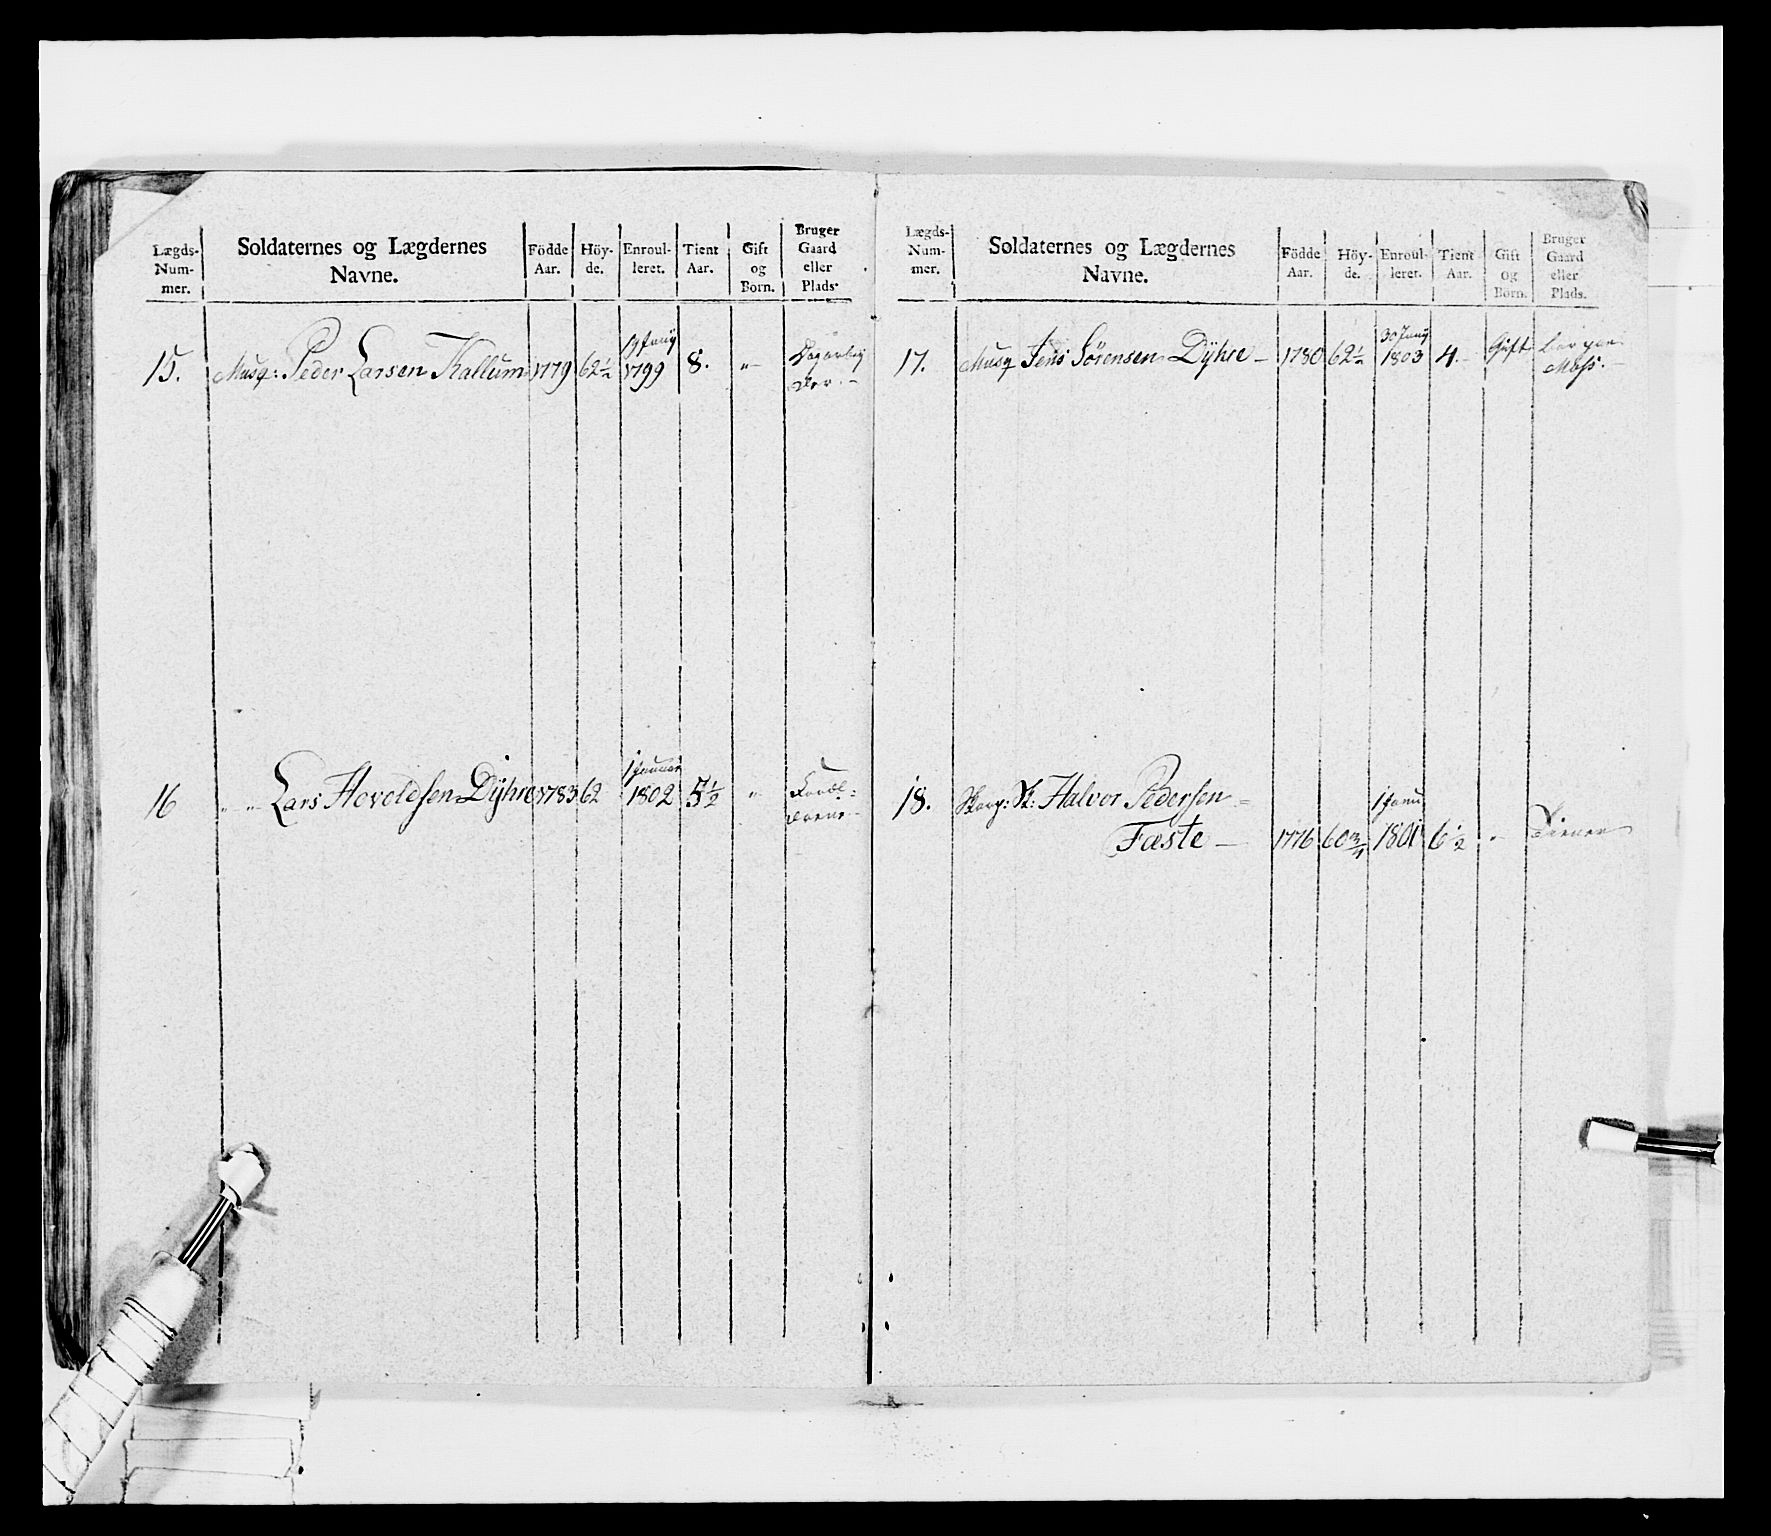 Lægds-
Num-
mer.
Soldaternes og Lægdernes
Navne.
Födde
Aar.
Höy-
de.
Enroul-
leret.
Tient
Aar.
Gift
og
Börn.
Bruger
Gaard
eller
Plads.
15. Musq: Peder Larsen Kallum 1779 62½ 1799 8. "
16 " " Lars Hovoldsen Dÿhre 1783 62 1 Januar 1802 5½ "
Lægds-
Num-
mer.
Soldaternes og Lægdernes
Navne.
Födde
Aar.
Höy-
de.
Enroul-
leret.
Tient
Aar.
Gift
og
Börn.
Bruger
Gaard
eller
Plads.
17. Musq Jens Sörensen Dÿhre – 1780 62½ 1803 4. – Gift
Moss. –
18. Skarp: Sk: Halvor Pedersen
Fæste – 1776 60¾ 1 Janu 1801 6½ " Tiener